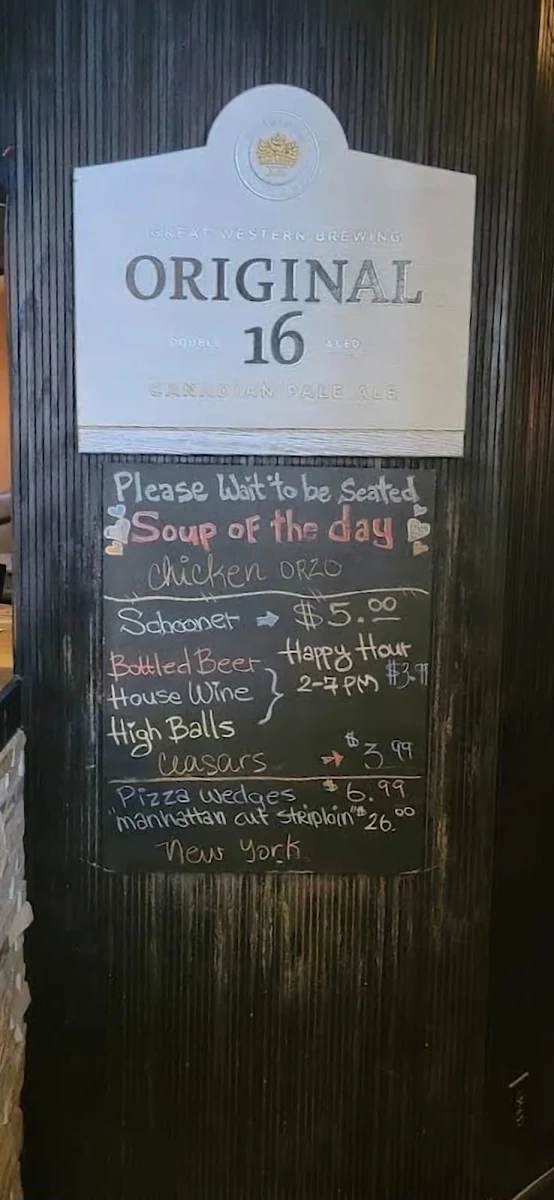 GREAT WESTERN BREWING
ORIGINAL
DOUBLE 16 AGED
CANADIAN PALE ALE
Please Wait to be Seated
Soup of the day
chicken ORZO
Schooner → $5.00
Bottled Beer
House Wine
High Balls
Happy Hour
2-7PM $3.99
ceasars → $3.99
Pizza wedges $6.99
"manhattan cut striploin" $26.00
New York